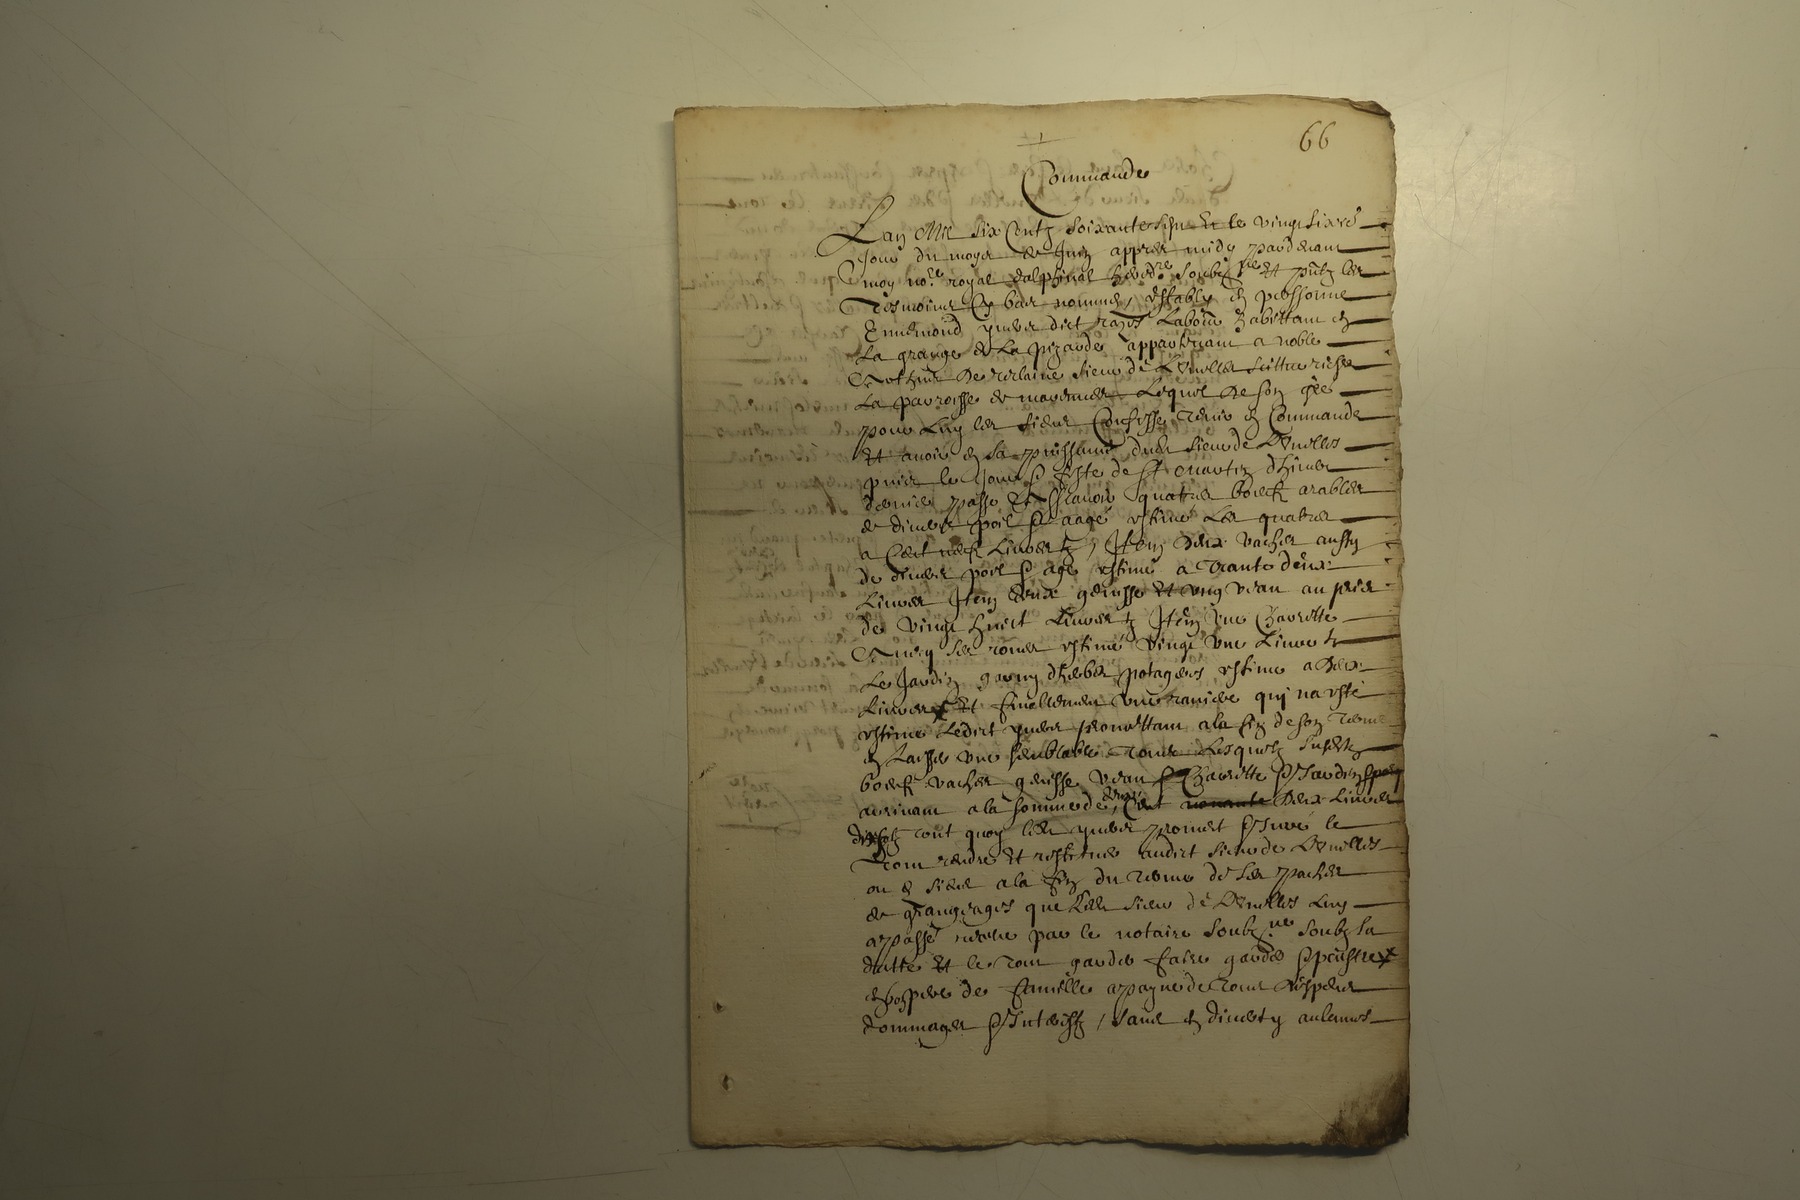 66
Commande
Lan Mil six Centz soixante sept et le vingt sixie
jour du moys de Juin appres midy pardevant
moy nore royal dalphinal hered.re soubzne et pntz les
Tesmoins Cy bas nommes, establÿ en perssonne
Ennemond dict laborr habittant en
la grange de la appartenant a noble
De sieur de
la parroisse de Lequel de son gré
pour Luy les siens Confesse tenir en Commande
et avoir en sa puissance dudt sieur de
puis le Jour & feste de st martin dhiver
dernier passe et Assavoir quatres boeufz arables
de divers poil & aage estimé les quatres
a Cent neuf Livres, Item deux vaches aussy
de divers poil & age estimé a trante deux
Livres Item deux genisse et ung veau au prix
de vingt huict Livres Item une Charrette
Avecq ses roues estimé vingt une Livres
Le Jardin garny dherbes potageres estime a deux
Livres Et finallement une qui na esté
estimé Ledict promettant a la fin de son terme
en laisser une semblable Lesquelz susdts
boeufz vaches genisse veau & Charrette & Jardin
arrivant a la somme de Cent deux Livres
tout quoy led promet & Jure le
Tout rendre et restituer audict sieur de
ou es siens a la fin du terme de ses paches
de grangeages que led sieur de luy
a passé par le notaire soubzne soubz la
datte et le tout garder faire garder
en bon pere de famille a payne de tous despens
dommages & Interestz, sans en divertir aulcunes